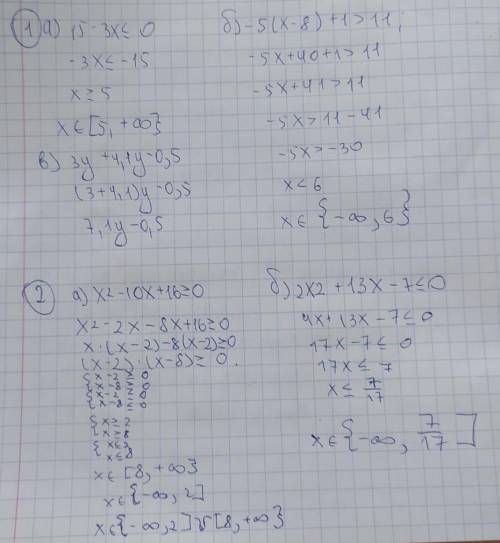 ① а) 15 - 3x ≤ 0
-3x ≤ -15
x ≥ 5
x ∈ [5, +∞}
в) 3y + 4,1y - 0,5
(3+4,1)y - 0,5
7,1y - 0,5
б) -5(x-8)+1 > 11;
-5x+40+1 > 11
-5x+41 > 11
-5x > 11 - 41
-5x > -30
x < 6
x ∈ {-∞, 6}
② а) x2 - 10x + 16 ≥ 0
x2 - 2x - 8x + 16 ≥ 0
x · (x-2) - 8(x-2) ≥ 0
(x-2) · (x-8) ≥ 0.
{ x - 2 ≥ 0
{ x - 8 ≥ 0
{ x - 2 ≤ 0
{ x - 8 ≤ 0
{ x ≥ 2
{ x ≥ 8
{ x ≤ 2
{ x ≤ 8
x ∈ [8, +∞}
x ∈ {-∞, 2]
x ∈ {-∞, 2] ∪ [8, +∞}
б) 2x2 + 13x - 7 ≤ 0
4x + 13x - 7 ≤ 0
17x - 7 ≤ 0
17x ≤ 7
x ≤ 7/17
x ∈ {-∞, 7/17]